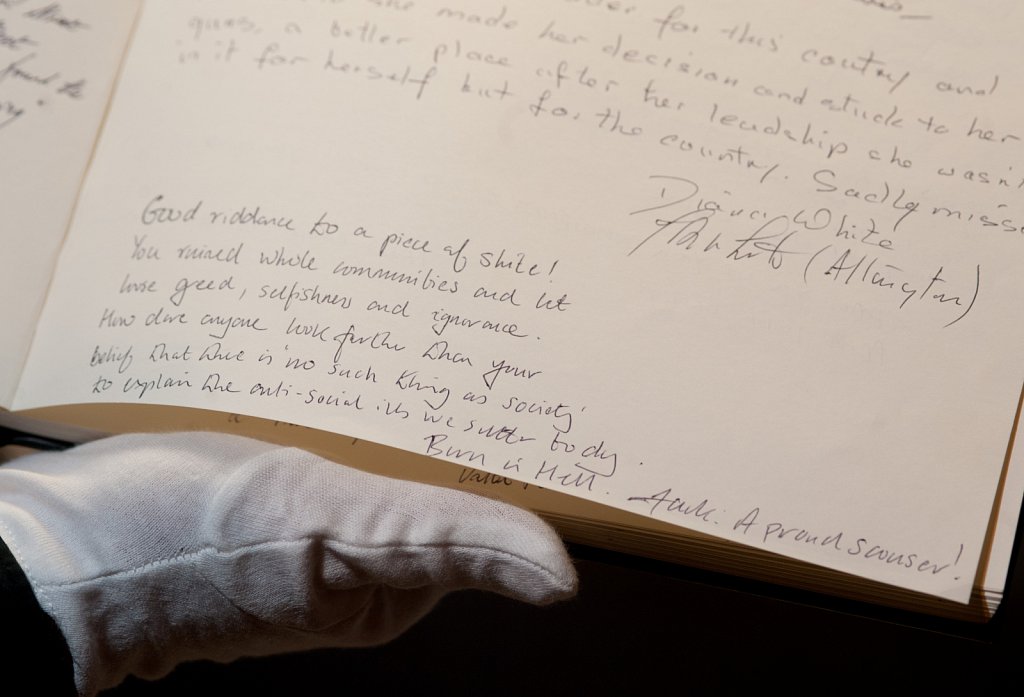 for this country and
she made her decision and stuck to her
a better place after her leadship she wasn't
in it for herself but for the country. Sadly miss
Diana White
(Allington)
Good riddance to a piece of shite!
You ruined whole communities and let
loose greed, selfishness and ignorance.
How dare anyone look further than your
belief that there is 'no such thing as society'
to explain the anti-social ills we suffer today.
Burn in Hell. A proud scouser!